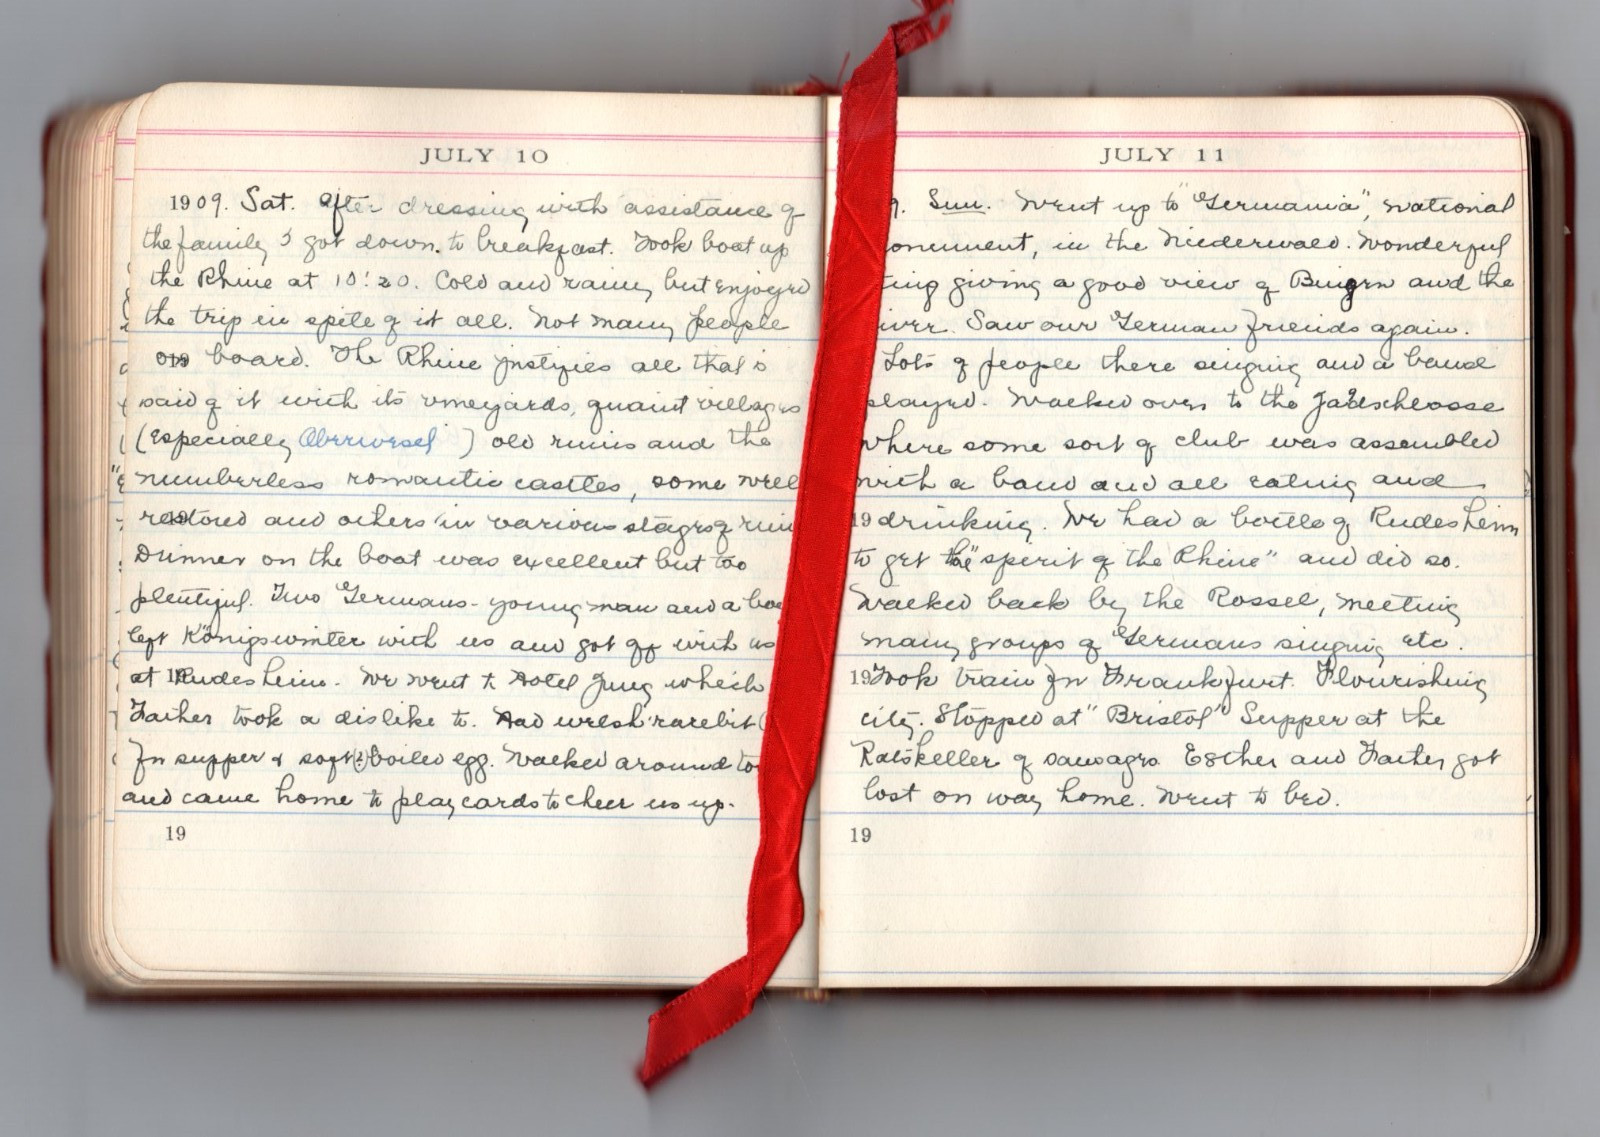 JULY 10
1909. Sat. After dressing with assistance of
the family I got down to breakfast. Took boat up
the Rhine at 10:20. Cold and rainy but enjoyed
the trip in spite of it all. Not many people
on board. The Rhine justifies all that is
said of it with its vineyards, quaint villages
(especially Oberwesel) old ruins and the
numberless romantic castles, some well
restored and others in various stages of ruin
Dinner on the boat was excellent but too
plentiful. Two Germans - young man and a
left Königswinter with us and got off with us
at Rudesheim. We went to Hotel Jung which
Father took a dislike to. Had welsh rarebit
for supper & soft (?) boiled egg. Walked around
and came home to play cards to cheer us up.
19
JULY 11
9. Sun. Went up to "Germania", National
onument, in the Niederwald. Wonderful
ting giving a good view of Bingen and the
iver. Saw our German friends again.
Lots of people there singing and a band
played. Walked over to the Jagdschlosse
where some sort of club was assembled
with a band and all eating and
19 drinking. We had a bottle of Rudesheim
to get the "sperit of the Rhine" and did so.
Walked back by the Rossel, meeting
many groups of Germans singing etc.
19 Took train for Frankfurt. Flourishing
city. Stopped at "Bristol" Supper at the
Ratskeller of sausages. Esther and Father got
lost on way home. Went to bed.
19